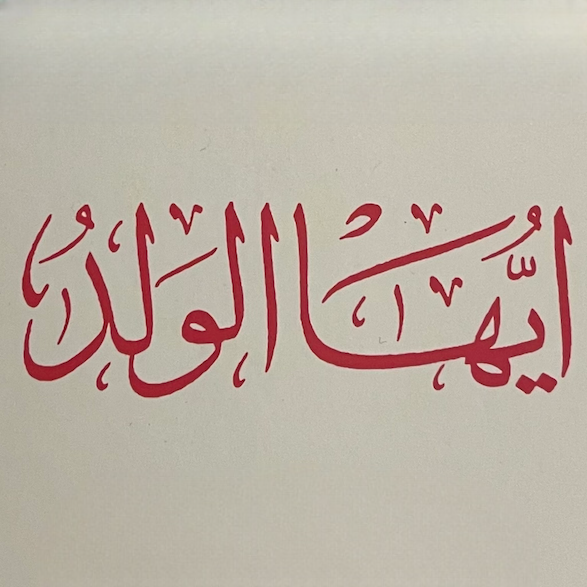 ايُّها الولدُ